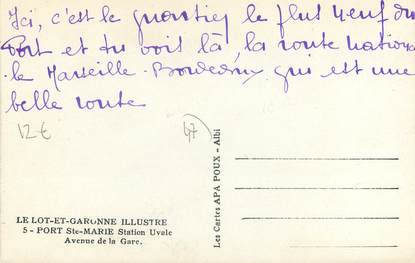 Ici, c'est le quartier le plus neuf du
Port et tu vois là, la route nationa
le Marseille-Bordeaux qui est une
belle route
12€
47
LE LOT-ET-GARONNE ILLUSTRE
5 - PORT Ste-MARIE Station Uvale
Avenue de la Gare.
Les Cartes APA POUX - Albi